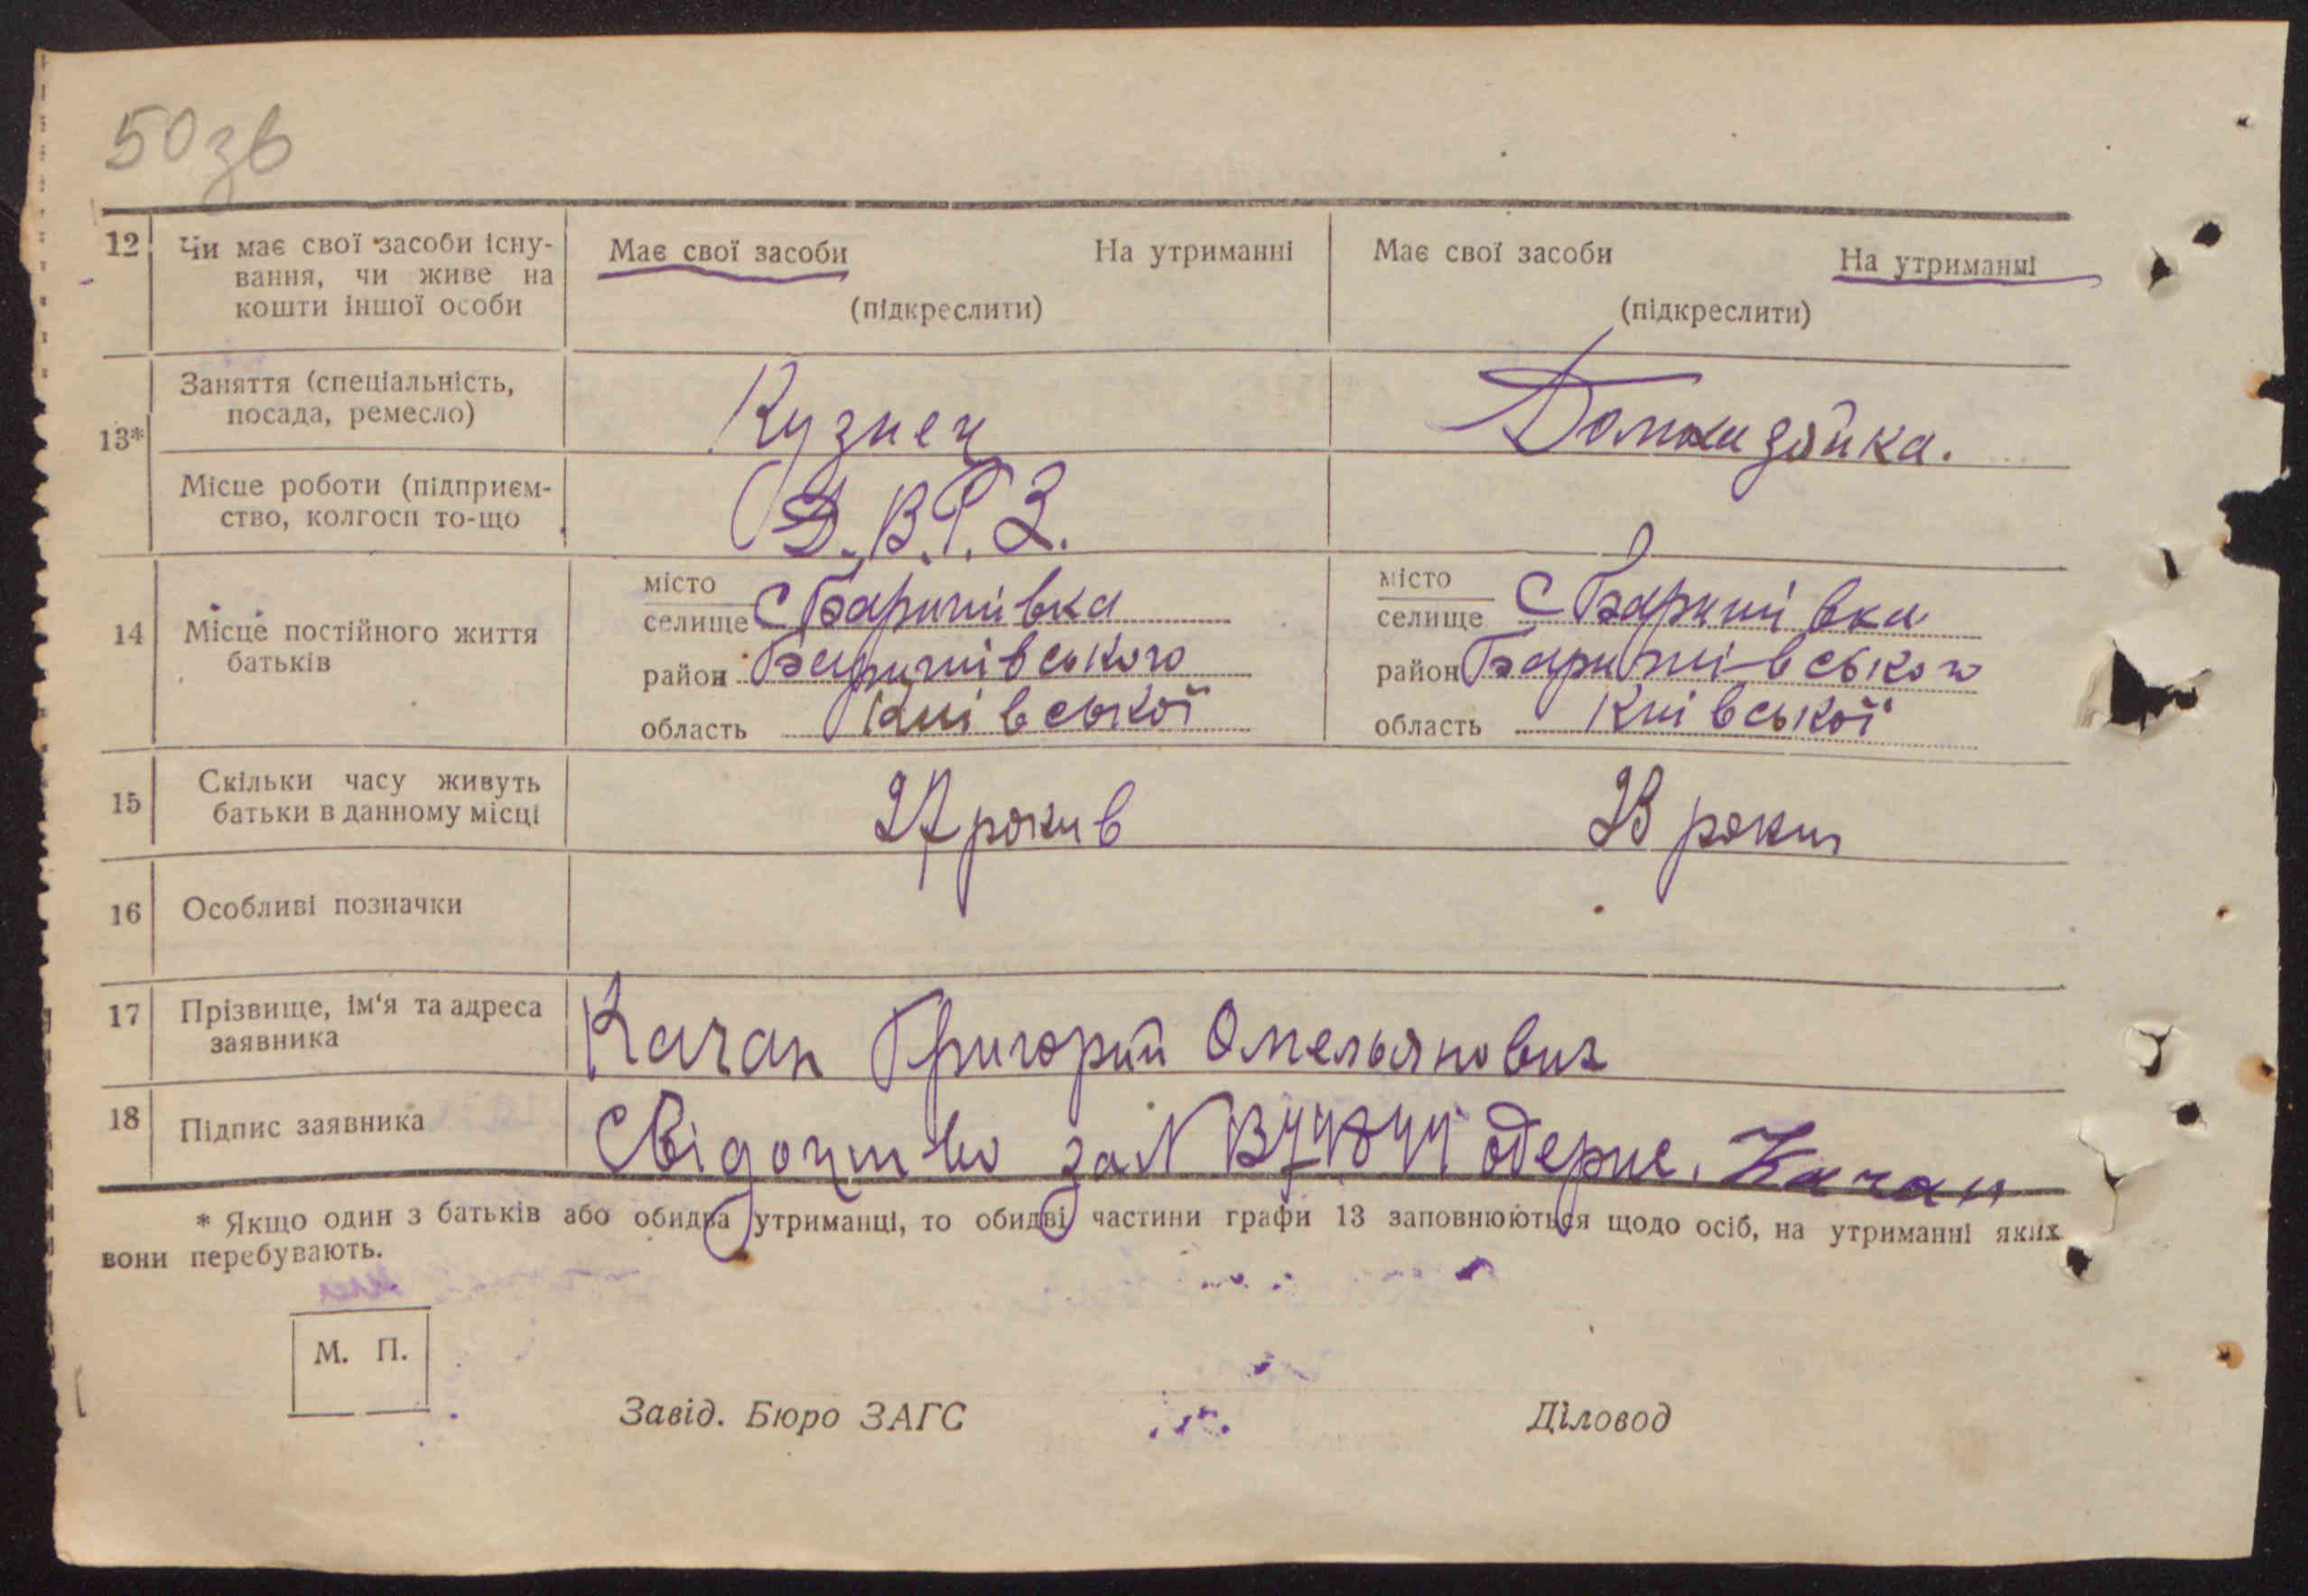 50зв
12 Чи має свої засоби існу-
вання, чи живе на
кошти іншої особи
Має свої засоби На утриманні
(підкреслити)
Має свої засоби На утриманні
(підкреслити)
13*
Заняття (спеціальність,
посада, ремесло)
Кузнец
Домохизяйка.
Місце роботи (підприєм-
ство, колгосп то-що
Д.В.Р.З.
14 Місце постійного життя
батьків
місто
селище С Баришівка
район Баришівського
область Київської
місто
селище С Баришівка
район Баришівського
область Київської
15 Скільки часу живуть
батьки в данному місці
27 рокив
23 роки
16 Особливі позначки
17 Прізвище, ім'я та адреса
заявника
Качан Григорий Омельянович
18 Підпис заявника
Свідоцтво за N одержав. Качан
* Якщо один з батьків або обидва утриманці, то обидві частини графи 13 заповнюються щодо осіб, на утриманні яких
вони перебувають.
М. П.
Завід. Бюро ЗАГС Діловод